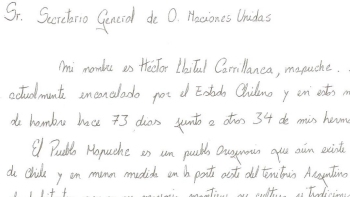 Sr. Secretario General de O. Naciones Unidas
mi nombre es Héctor Llaitul Carrillanca, mapuche.
actualmente encarcelado por el Estado Chileno y en estos m
de hambre hace 73 dias junto a otros 34 de mis herma
El Pueblo Mapuche es un pueblo Originario que aún existe
de Chile y en menor medida en la parte este del territorio Argentino